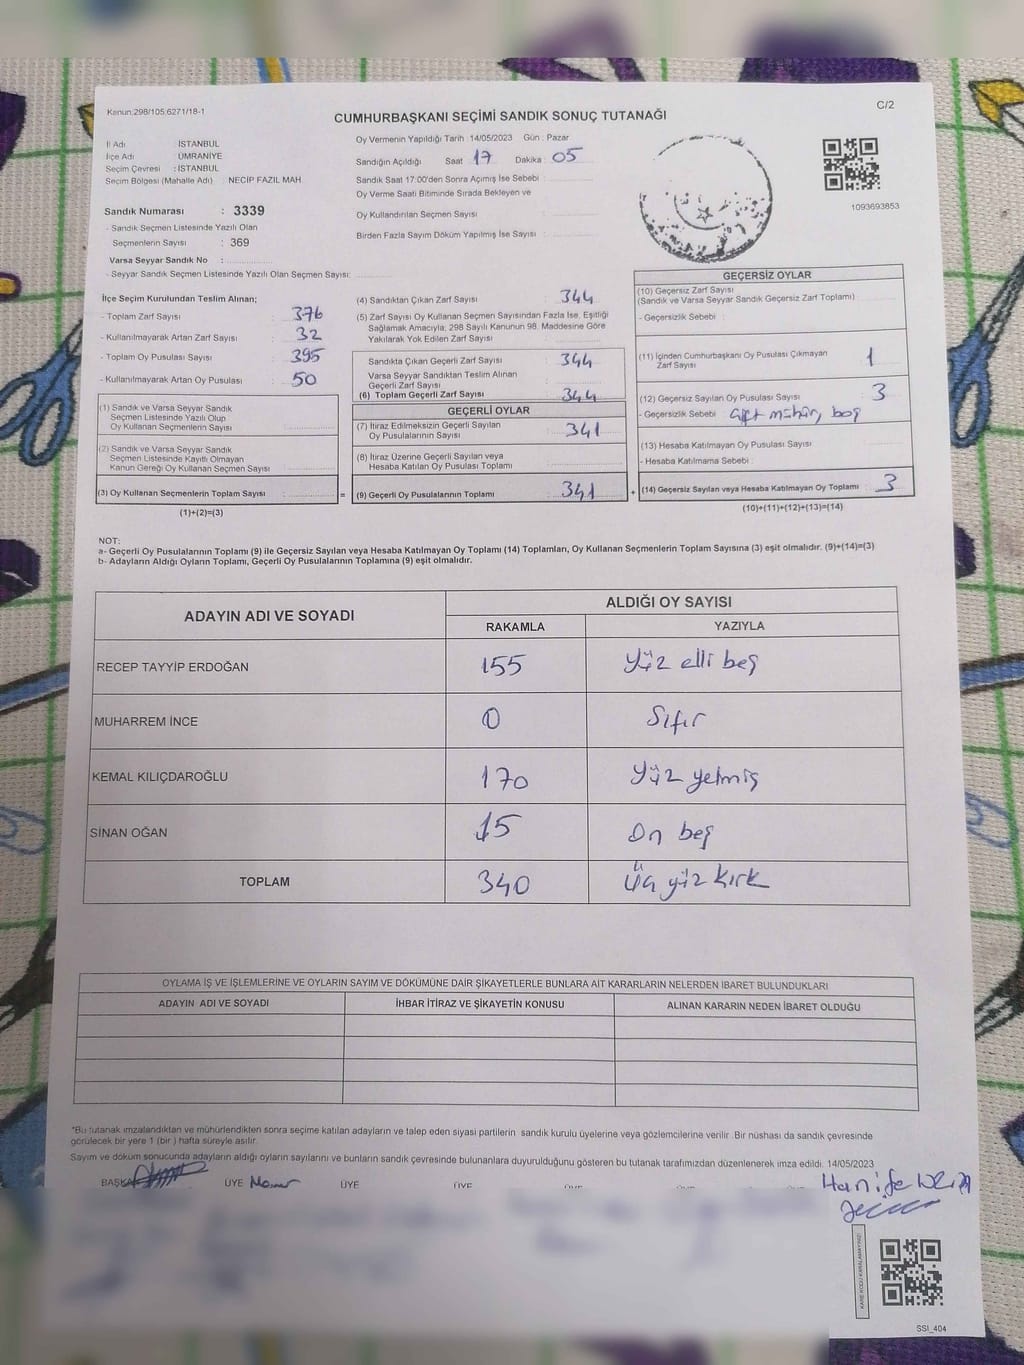 Kanun:298/105;6271/18-1
C/2
CUMHURBAŞKANI SEÇİMİ SANDIK SONUÇ TUTANAĞI
İl Adı : İSTANBUL
İlçe Adı : ÜMRANİYE
Seçim Çevresi : İSTANBUL
Seçim Bölgesi (Mahalle Adı) : NECİP FAZIL MAH
Sandık Numarası : 3339
- Sandık Seçmen Listesinde Yazılı Olan
Seçmenlerin Sayısı : 369
Varsa Seyyar Sandık No :
- Seyyar Sandık Seçmen Listesinde Yazılı Olan Seçmen Sayısı:
Oy Vermenin Yapıldığı Tarih 14/05/2023 Gün : Pazar
Sandığın Açıldığı Saat 17 Dakika : 05
Sandık Saat 17:00'den Sonra Açımış İse Sebebi :
Oy Verme Saati Bitiminde Sırada Bekleyen ve
Oy Kullandırılan Seçmen Sayısı :
Birden Fazla Sayım Döküm Yapılmış İse Sayısı :
1093693853
İlçe Seçim Kurulundan Teslim Alınan;
- Toplam Zarf Sayısı : 376
- Kullanılmayarak Artan Zarf Sayısı : 32
- Toplam Oy Pusulası Sayısı : 395
- Kullanılmayarak Artan Oy Pusulası : 50
(1) Sandık ve Varsa Seyyar Sandık
Seçmen Listesinde Yazılı Olup
Oy Kullanan Seçmenlerin Sayısı :
(2) Sandık ve Varsa Seyyar Sandık
Seçmen Listesinde Kayıtlı Olmayan
Kanun Gereği Oy Kullanan Seçmen Sayısı :
(3) Oy Kullanan Seçmenlerin Toplam Sayısı :
(1)+(2)=(3)
(4) Sandıktan Çıkan Zarf Sayısı : 344
(5) Zarf Sayısı Oy Kullanan Seçmen Sayısından Fazla İse, Eşitliği
Sağlamak Amacıyla; 298 Sayılı Kanunun 98. Maddesine Göre
Yakılarak Yok Edilen Zarf Sayısı :
Sandıkta Çıkan Geçerli Zarf Sayısı : 344
Varsa Seyyar Sandıktan Teslim Alınan
Geçerli Zarf Sayısı :
(6) Toplam Geçerli Zarf Sayısı : 344
GEÇERLİ OYLAR
(7) İtiraz Edilmeksizin Geçerli Sayılan
Oy Pusulalarının Sayısı : 341
(8) İtiraz Üzerine Geçerli Sayılan veya
Hesaba Katılan Oy Pusulası Toplamı :
= (9) Geçerli Oy Pusulalarının Toplamı : 341 +
GEÇERSİZ OYLAR
(10) Geçersiz Zarf Sayısı
(Sandık ve Varsa Seyyar Sandık Geçersiz Zarf Toplamı) :
- Geçersizlik Sebebi :
(11) İçinden Cumhurbaşkanı Oy Pusulası Çıkmayan
Zarf Sayısı : 1
(12) Geçersiz Sayılan Oy Pusulası Sayısı : 3
- Geçersizlik Sebebi : Çift mühür, boş
(13) Hesaba Katılmayan Oy Pusulası Sayısı :
- Hesaba Katılmama Sebebi :
(14) Geçersiz Sayılan veya Hesaba Katılmayan Oy Toplamı : 3
(10)+(11)+(12)+(13)=(14)
NOT:
a- Geçerli Oy Pusulalarının Toplamı (9) ile Geçersiz Sayılan veya Hesaba Katılmayan Oy Toplamı (14) Toplamları, Oy Kullanan Seçmenlerin Toplam Sayısına (3) eşit olmalıdır. (9)+(14)=(3)
b- Adayların Aldığı Oyların Toplamı, Geçerli Oy Pusulalarının Toplamına (9) eşit olmalıdır.
ADAYIN ADI VE SOYADI
ALDIĞI OY SAYISI
RAKAMLA YAZIYLA
RECEP TAYYİP ERDOĞAN 155 Yüz elli beş
MUHARREM İNCE 0 Sıfır
KEMAL KILIÇDAROĞLU 170 Yüz yetmiş
SİNAN OĞAN 15 On beş
TOPLAM 340 Üç yüz kırk
OYLAMA İŞ VE İŞLEMLERİNE VE OYLARIN SAYIM VE DÖKÜMÜNE DAİR ŞİKAYETLERLE BUNLARA AİT KARARLARIN NELERDEN İBARET BULUNDUKLARI
ADAYIN ADI VE SOYADI İHBAR İTİRAZ VE ŞİKAYETİN KONUSU ALINAN KARARIN NEDEN İBARET OLDUĞU
*Bu tutanak imzalandıktan ve mühürlendikten sonra seçime katılan adayların ve talep eden siyasi partilerin sandık kurulu üyelerine veya gözlemcilerine verilir .Bir nüshası da sandık çevresinde
görülecek bir yere 1 (bir ) hafta süreyle asılır.
Sayım ve döküm sonucunda adayların aldığı oyların sayılarını ve bunların sandık çevresinde bulunanlara duyurulduğunu gösteren bu tutanak tarafımızdan düzenlenerek imza edildi. 14/05/2023
BAŞKAN ÜYE ÜYE ÜYE ÜYE ÜYE
Hanife
KARE KODU KARALAMAYINIZ!
SSI_404